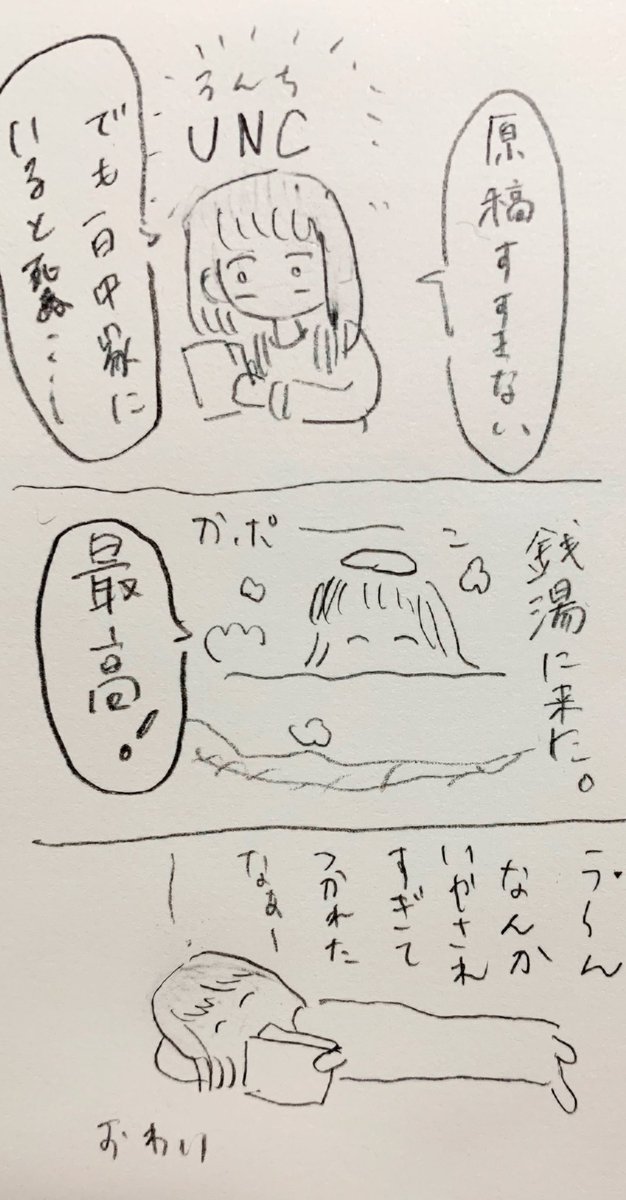 原稿すすまない
うんち
UNC
でも一日中家に
いると死ぬ…
銭湯に来た。
カポーン
最高!
う〜ん
なんか
いやされ
すぎて
つかれた
なぁー
おわり